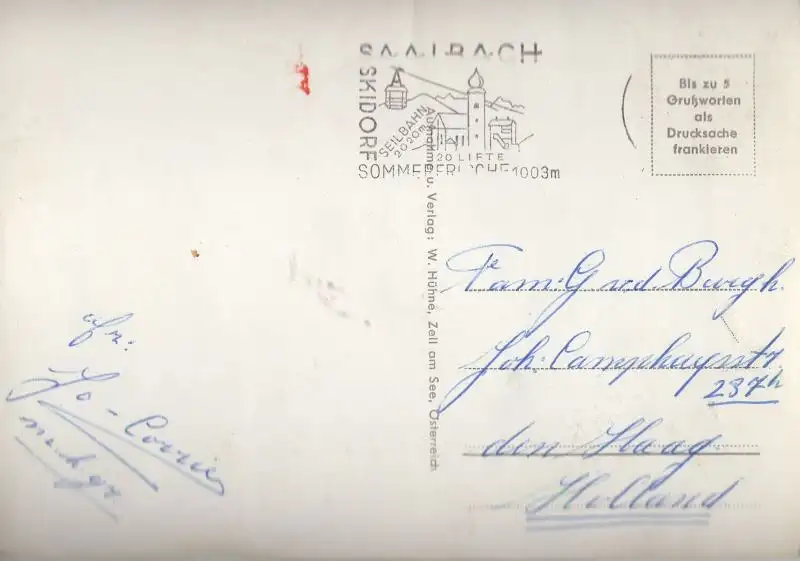 SAALBACH
SKIDORF
SEILBAHN
2020m
20 LIFTE
SOMMERFRISCHE 1003m
Bis zu 5
Grußworten
als
Drucksache
frankieren
Aufnahme u. Verlag: W. Hühne, Zell am See, Österreich
Fam: G v.d. Burgh.
Joh: Camphuysstr.
237h
den Haag
Holland
afz:
Jo - Corrie